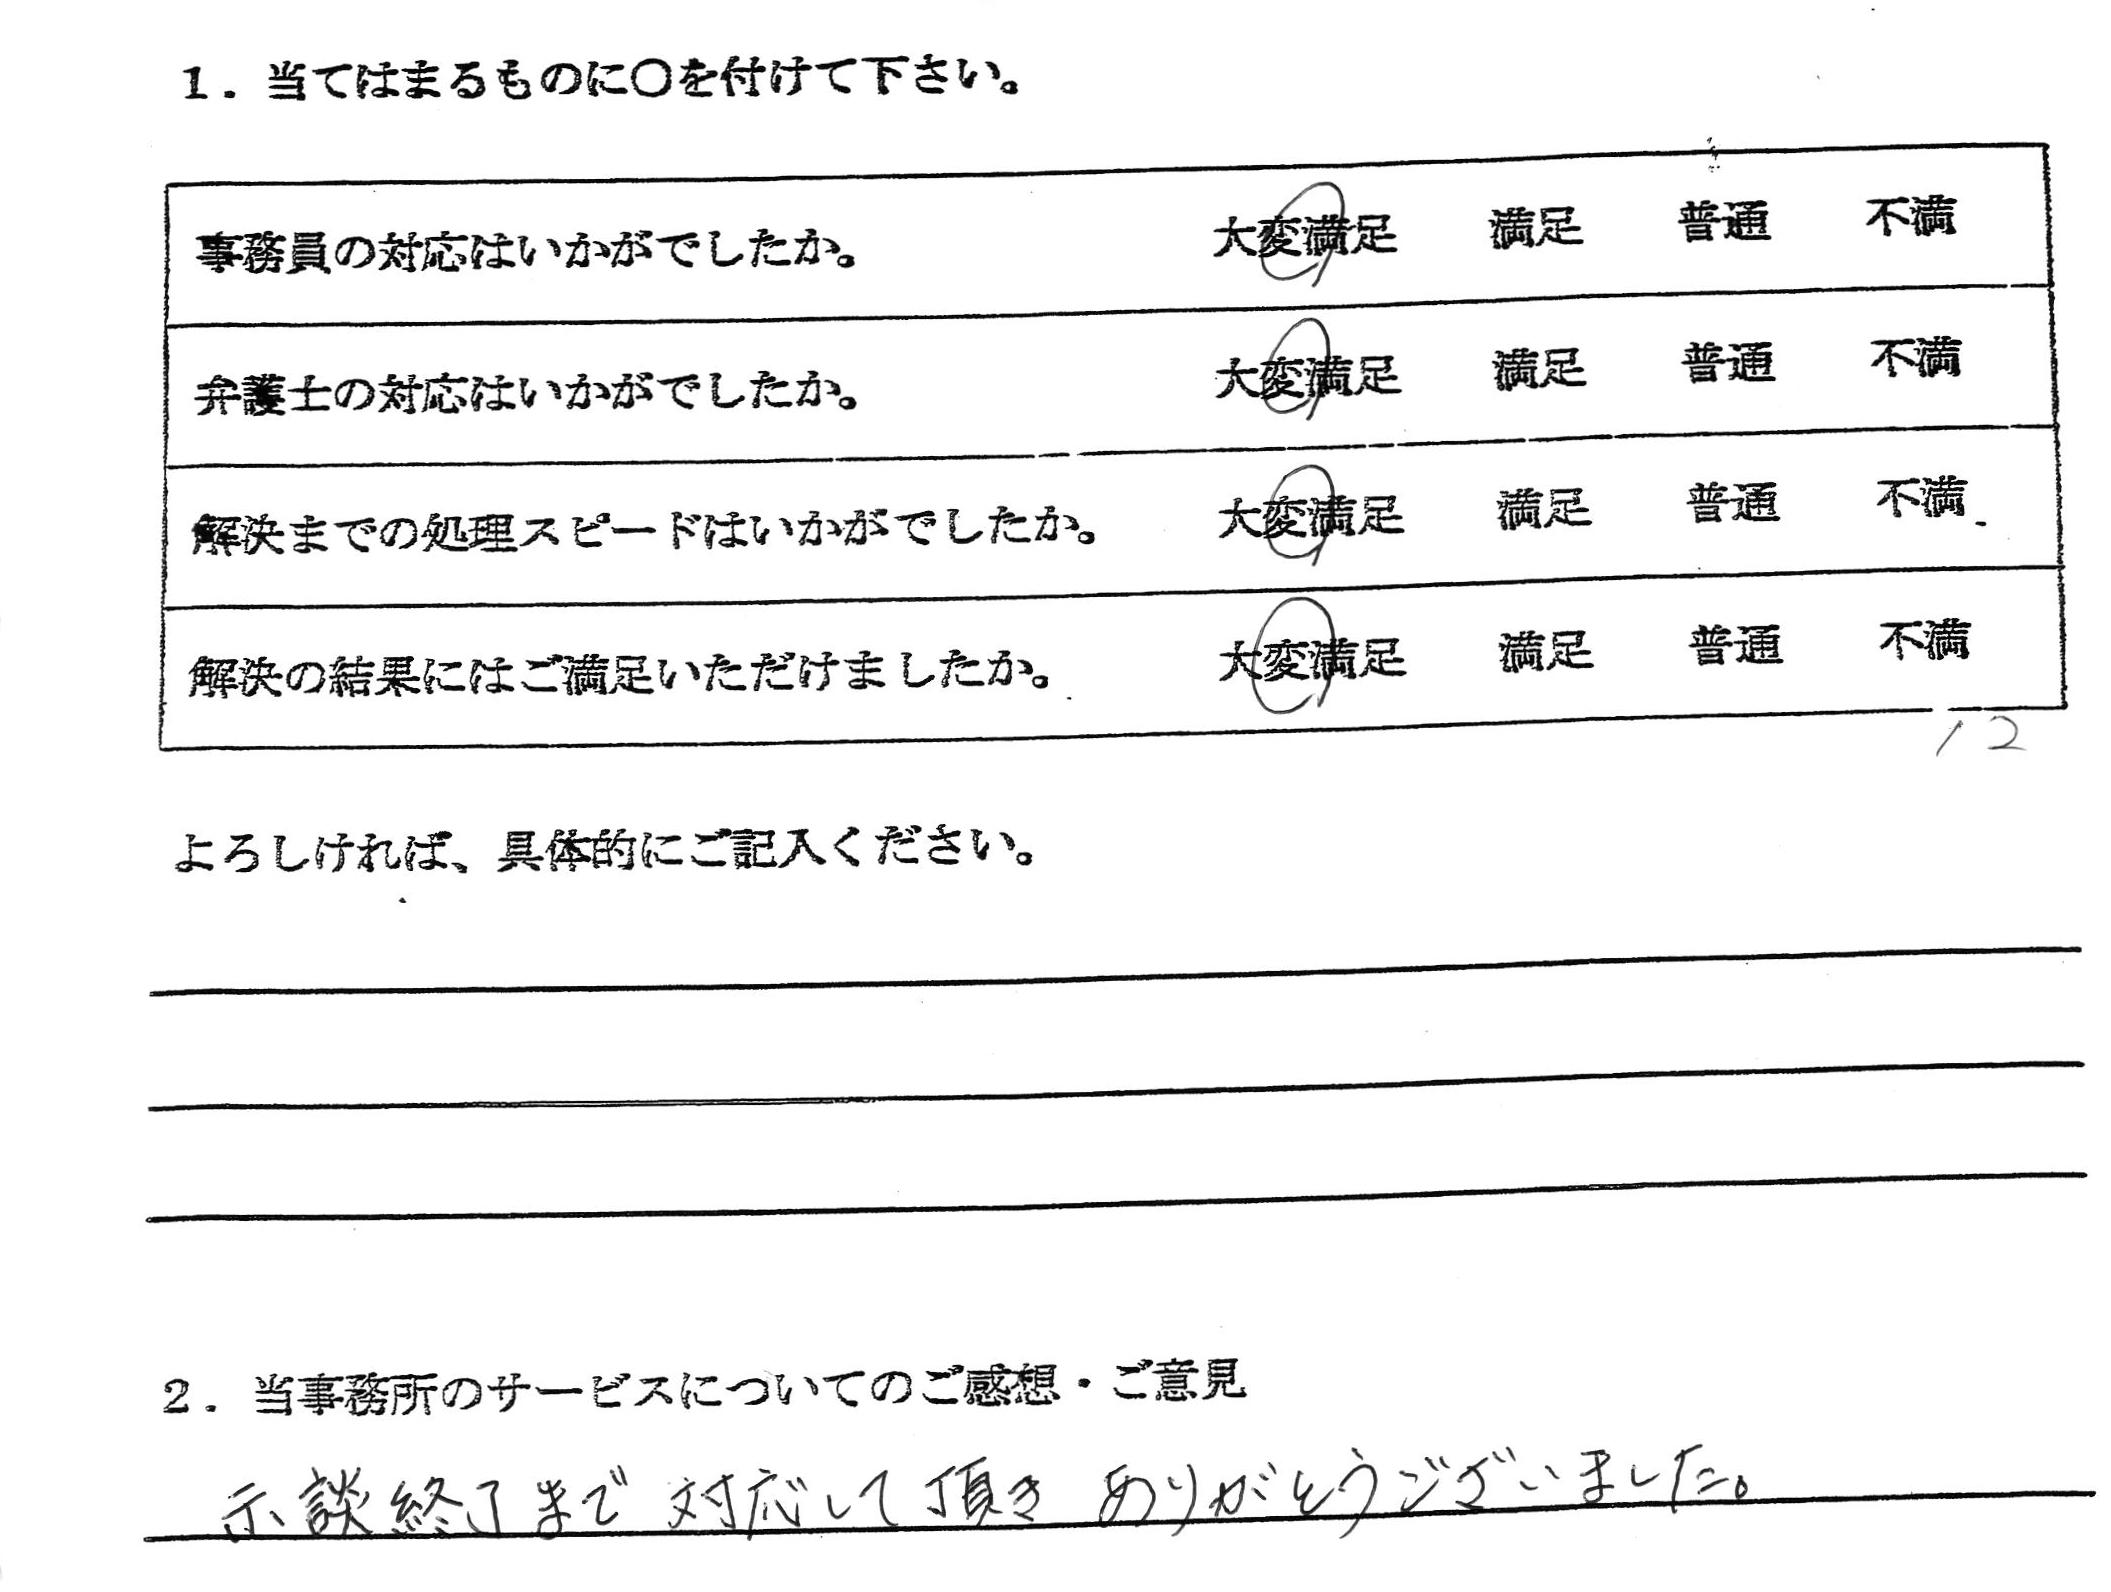 1．当てはまるものに〇を付けて下さい。
事務員の対応はいかがでしたか。 大変満足 満足 普通 不満
弁護士の対応はいかがでしたか。 大変満足 満足 普通 不満
解決までの処理スピードはいかがでしたか。 大変満足 満足 普通 不満
解決の結果にはご満足いただけましたか。 大変満足 満足 普通 不満
12
よろしければ、具体的にご記入ください。
2．当事務所のサービスについてのご感想・ご意見
示談終了まで対応して頂きありがとうございました。